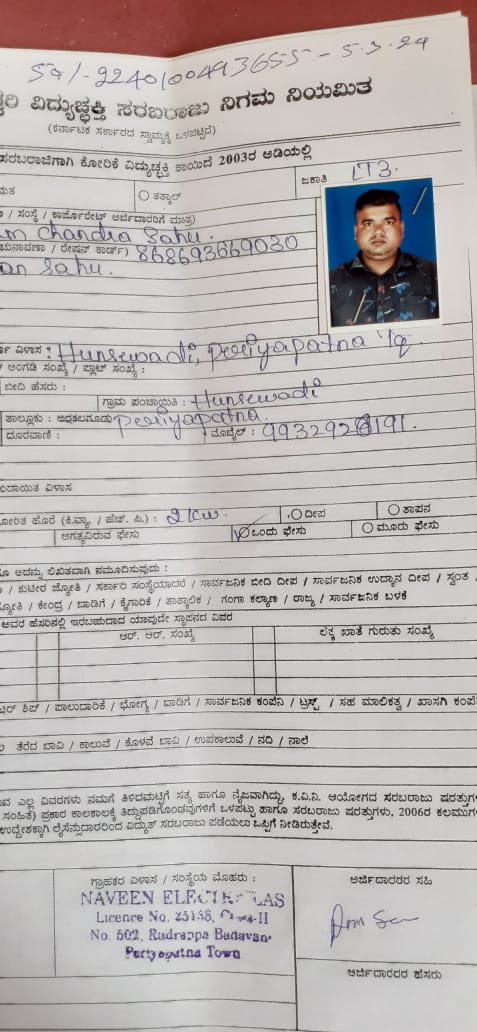 Sg/-2240100493655 - 5.3.24
ವಿದ್ಯುಚ್ಛಕ್ತಿ ಸರಬರಾಜು ನಿಗಮ ನಿಯಮಿತ
(ಕರ್ನಾಟಕ ಸರ್ಕಾರದ ಸ್ವಾಮ್ಯಕ್ಕೆ ಒಳಪಟ್ಟಿದೆ)
ಸರಬರಾಜಿಗಾಗಿ ಕೋರಿಕೆ ವಿದ್ಯುಚ್ಛಕ್ತಿ ಕಾಯಿದೆ 2003ರ ಅಡಿಯಲ್ಲಿ
ತತ್ಕಾಲ್ ಜಕಾತಿ LT3.
/ ಸಂಸ್ಥೆ / ಕಾರ್ಪೊರೇಟ್ ಅರ್ಜಿದಾರರಿಗೆ ಮಾತ್ರ)
Chandra Sahu.
ಚುನಾವಣಾ / ರೇಷನ್ ಕಾರ್ಡ್) 868693669030
Sahu.
ವಿಳಾಸ : Hunsewadi, Periyapatna Tq
/ ಅಂಗಡಿ ಸಂಖ್ಯೆ / ಪ್ಲಾಟ್ ಸಂಖ್ಯೆ :
ಬೀದಿ ಹೆಸರು :
ಗ್ರಾಮ ಪಂಚಾಯಿತಿ : Hunsewadi
ತಾಲ್ಲೂಕು : ಅರಕಲಗೂಡು Periyapatna.
ದೂರವಾಣಿ : ಮೊಬೈಲ್ :
ವಿಳಾಸ
ಹೊರೆ (ಕಿ.ವ್ಯಾ. / ಹೆಚ್. ಪಿ.) : 2 kw. ದೀಪ ತಾಪನ
ಅಗತ್ಯವಿರುವ ಫೇಸು ಒಂದು ಫೇಸು ಮೂರು ಫೇಸು
ಅದನ್ನು ಲಿಖಿತವಾಗಿ ನಮೂದಿಸುವುದು :
/ ಕುಟೀರ ಜ್ಯೋತಿ / ಸರ್ಕಾರಿ ಸಂಸ್ಥೆಯಾದರೆ / ಸಾರ್ವಜನಿಕ ಬೀದಿ ದೀಪ / ಸಾರ್ವಜನಿಕ ಉದ್ಯಾನ ದೀಪ / ಸ್ವಂತ
/ ಕೇಂದ್ರ / ಬಾಡಿಗೆ / ಕೈಗಾರಿಕೆ / ತಾತ್ಕಾಲಿಕ / ಗಂಗಾ ಕಲ್ಯಾಣ / ರಾಜ್ಯ / ಸಾರ್ವಜನಿಕ ಬಳಕೆ
ಅವರ ಹೆಸರಿನಲ್ಲಿ ಇರಬಹುದಾದ ಯಾವುದೇ ಸ್ಥಾಪನದ ವಿವರ
ಆರ್. ಆರ್. ಸಂಖ್ಯೆ ಲೆಕ್ಕ ಖಾತೆ ಗುರುತು ಸಂಖ್ಯೆ
ಶಿಪ್ / ಪಾಲುದಾರಿಕೆ / ಭೋಗ್ಯ / ಬಾಡಿಗೆ / ಸಾರ್ವಜನಿಕ ಕಂಪೆನಿ / ಟ್ರಸ್ಟ್ / ಸಹ ಮಾಲಿಕತ್ವ / ಖಾಸಗಿ
ತೆರೆದ ಬಾವಿ / ಕಾಲುವೆ / ಕೊಳವೆ ಬಾವಿ / ಉಪಕಾಲುವೆ / ನದಿ / ನಾಲೆ
ಎಲ್ಲ ವಿವರಗಳು ನಮಗೆ ತಿಳಿದಮಟ್ಟಿಗೆ ಸತ್ಯ ಹಾಗೂ ನೈಜವಾಗಿದ್ದು, ಕ.ವಿ.ನಿ. ಆಯೋಗದ ಸರಬರಾಜು
ಸಂಹಿತೆ) ಪ್ರಕಾರ ಕಾಲಕಾಲಕ್ಕೆ ತಿದ್ದುಪಡಿಗೊಂಡವುಗಳಿಗೆ ಒಳಪಟ್ಟು ಹಾಗೂ ಸರಬರಾಜು ಷರತ್ತುಗಳು, 2006ರ
ಉದ್ದೇಶಕ್ಕಾಗಿ ಲೈಸೆನ್ಸುದಾರರಿಂದ ವಿದ್ಯುತ್ ಸರಬರಾಜು ಪಡೆಯಲು ಒಪ್ಪಿಗೆ ನೀಡಿರುತ್ತೇವೆ.
ಗ್ರಾಹಕರ ವಿಳಾಸ / ಸಂಸ್ಥೆಯ ಮೊಹರು : ಅರ್ಜಿದಾರರ ಸಹಿ
NAVEEN
Licence No. 25138,
No. 502, Rudrappa Badavane
Periyapatna Town
ಅರ್ಜಿದಾರರ ಹೆಸರು